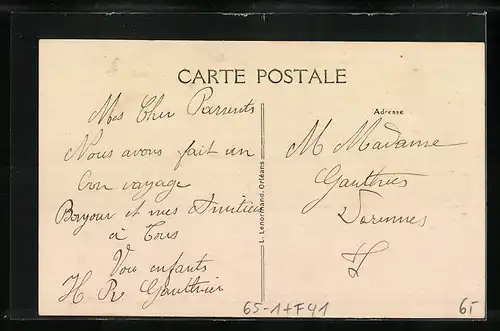 CARTE POSTALE
Mes Cher Parrents
Nous avons fait un
bon voyage
Bonjour et mes Amitiés
à Tous
Vou enfants
H R Gauthier
L. Lenormand, Orléans
Adresse
M Madame
Gauthier
Varennes
65-1+F41
65